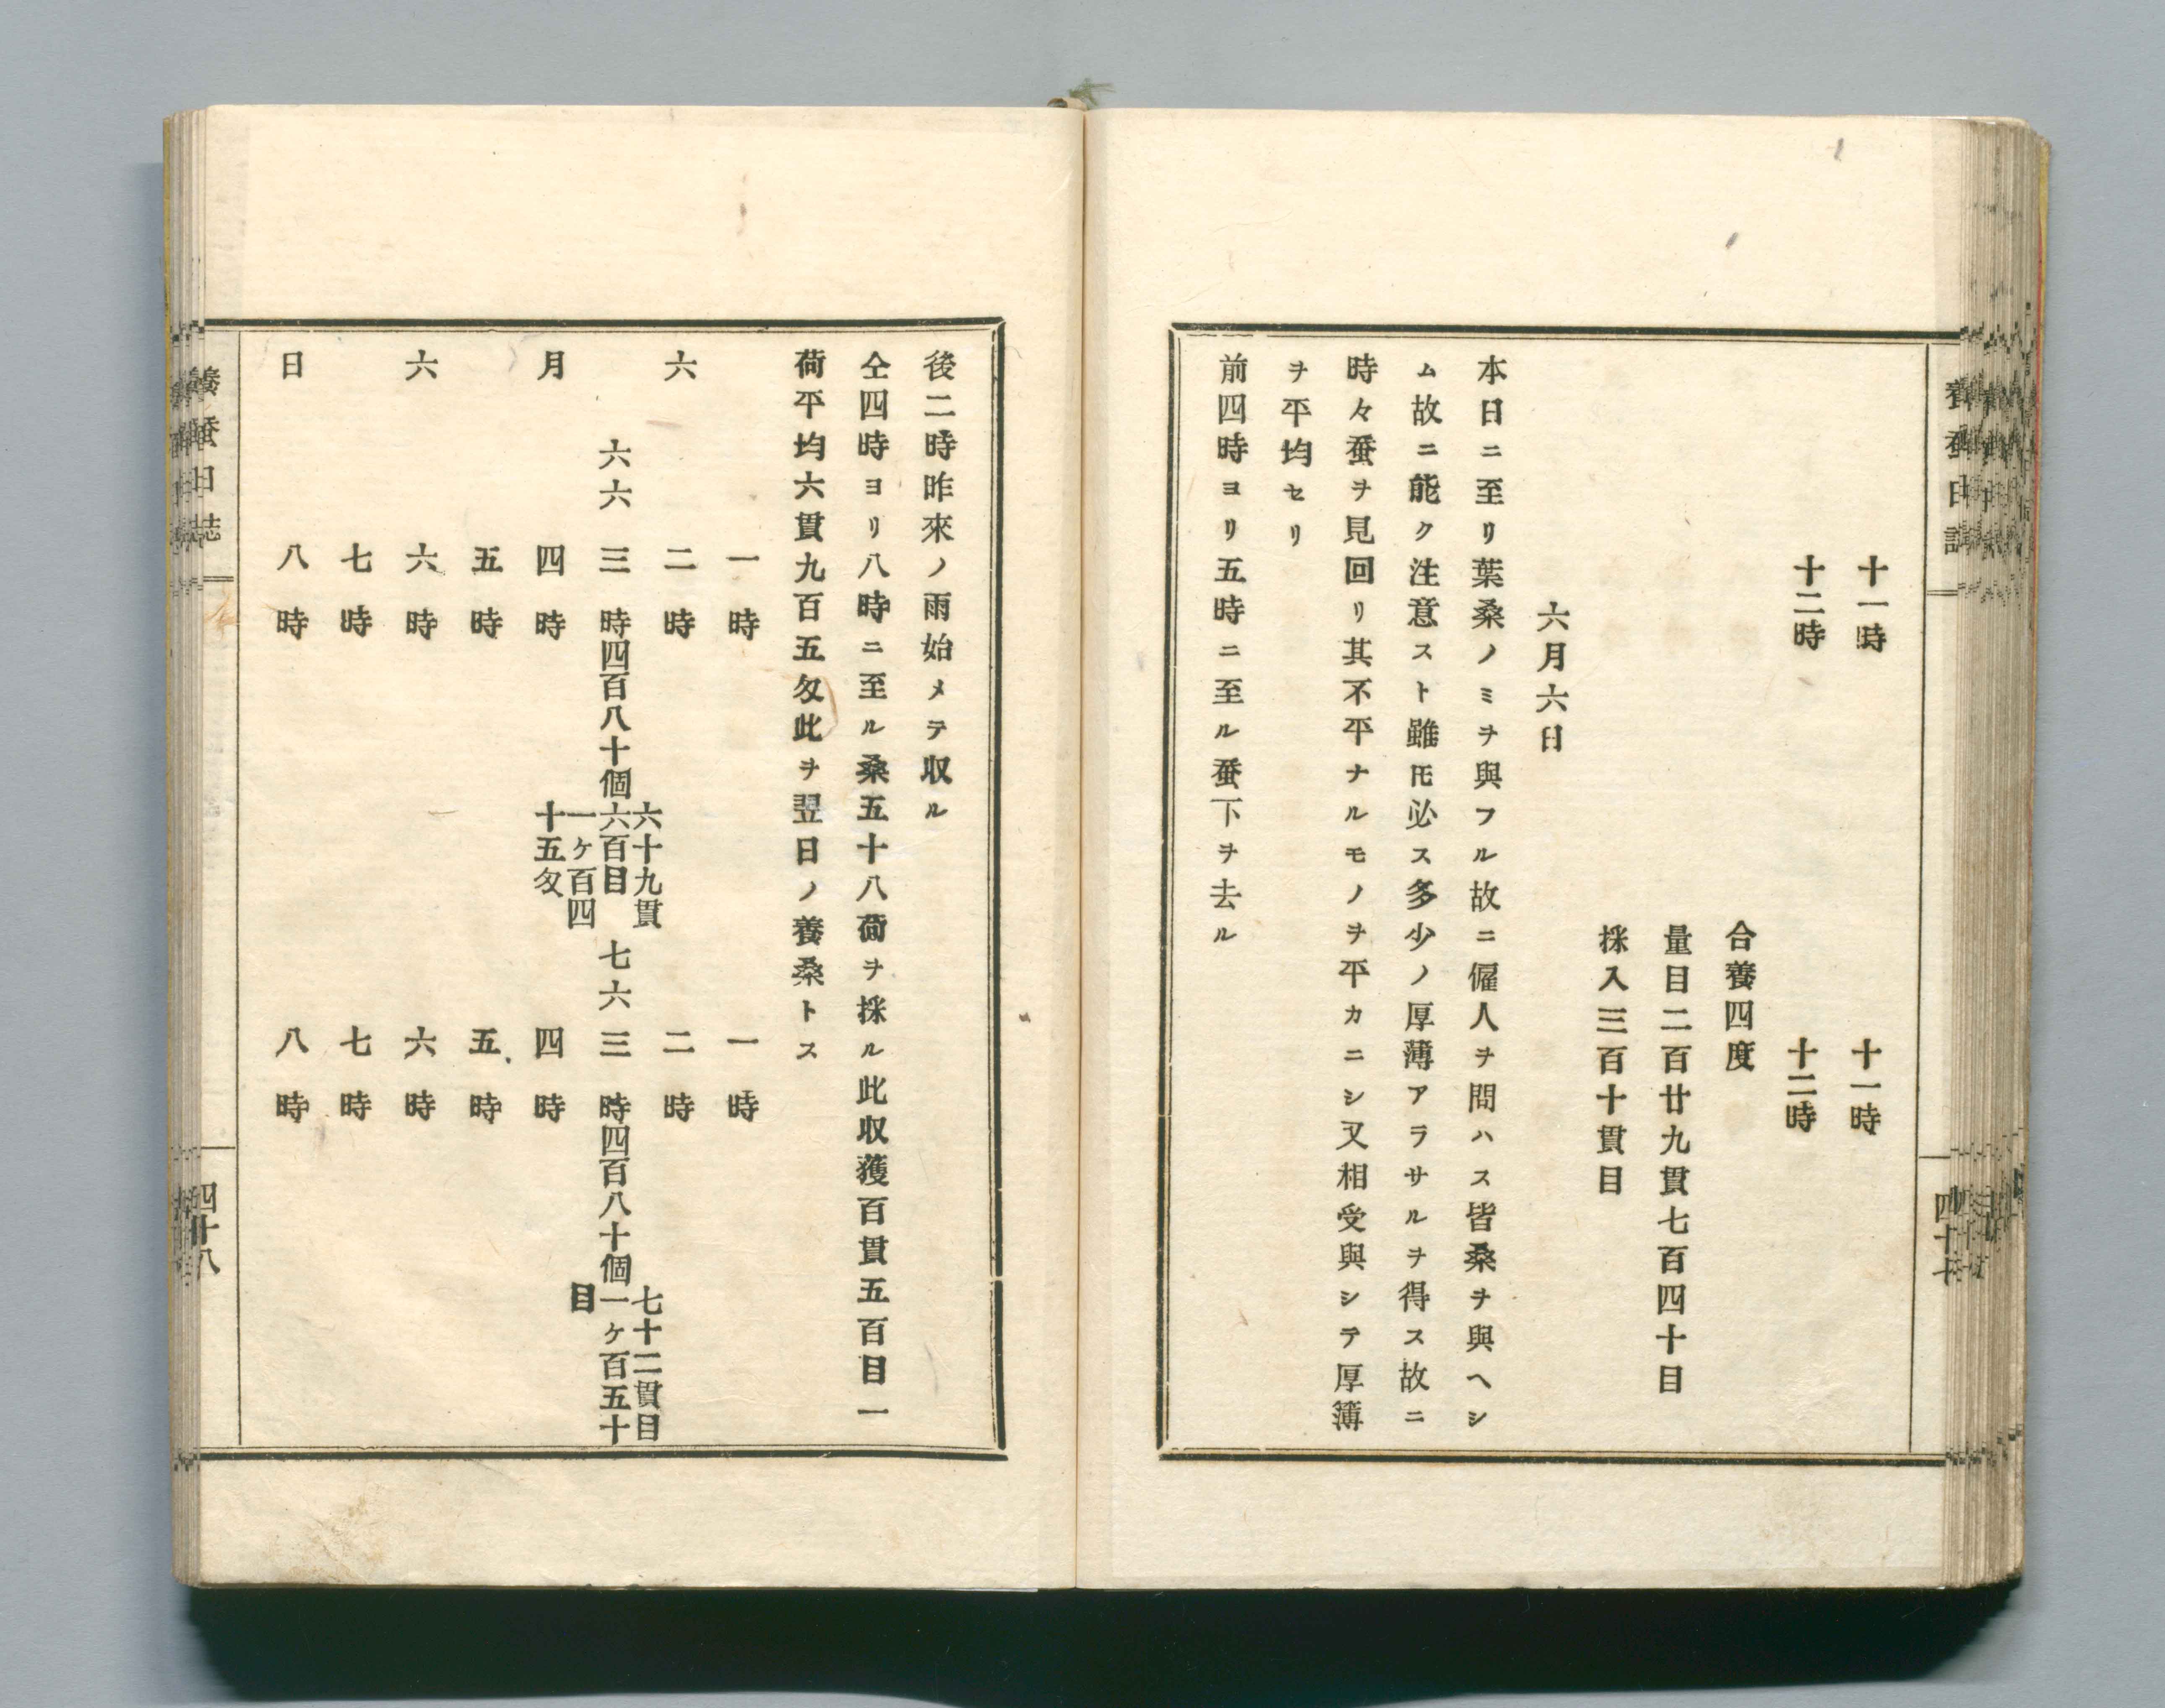 養蚕日誌
四十七
十一時　十一時
十二時　十二時
合養四度
量目二百廿九貫七百四十目
採入三百十貫目
六月六日
本日ニ至リ葉桑ノミヲ與フル故ニ傭人ヲ問ハス皆桑ヲ與ヘシ
ム故ニ能ク注意スト雖𪜈必ス多少ノ厚薄アラサルヲ得ス故ニ
時々蚕ヲ見回リ其不平ナルモノヲ平カニシ又相受與シテ厚簿
ヲ平均セリ
前四時ヨリ五時ニ至ル蚕下ヲ去ル
後二時昨來ノ雨始メテ収ル
仝四時ヨリ八時ニ至ル桑五十八荷ヲ採ル此収獲百貫五百目一
荷平均六貫九百五匁此ヲ翌日ノ養桑トス
一時　一時
六　二時　二時
六六　三時四百八十個六十九貫六百目一ケ百四十五匁　七六　三時四百八十個七十二貫目一ケ百五十目
月　四時　四時
五時　五時
六　六時　六時
七時　七時
日　八時　八時
養蚕日誌
四十八